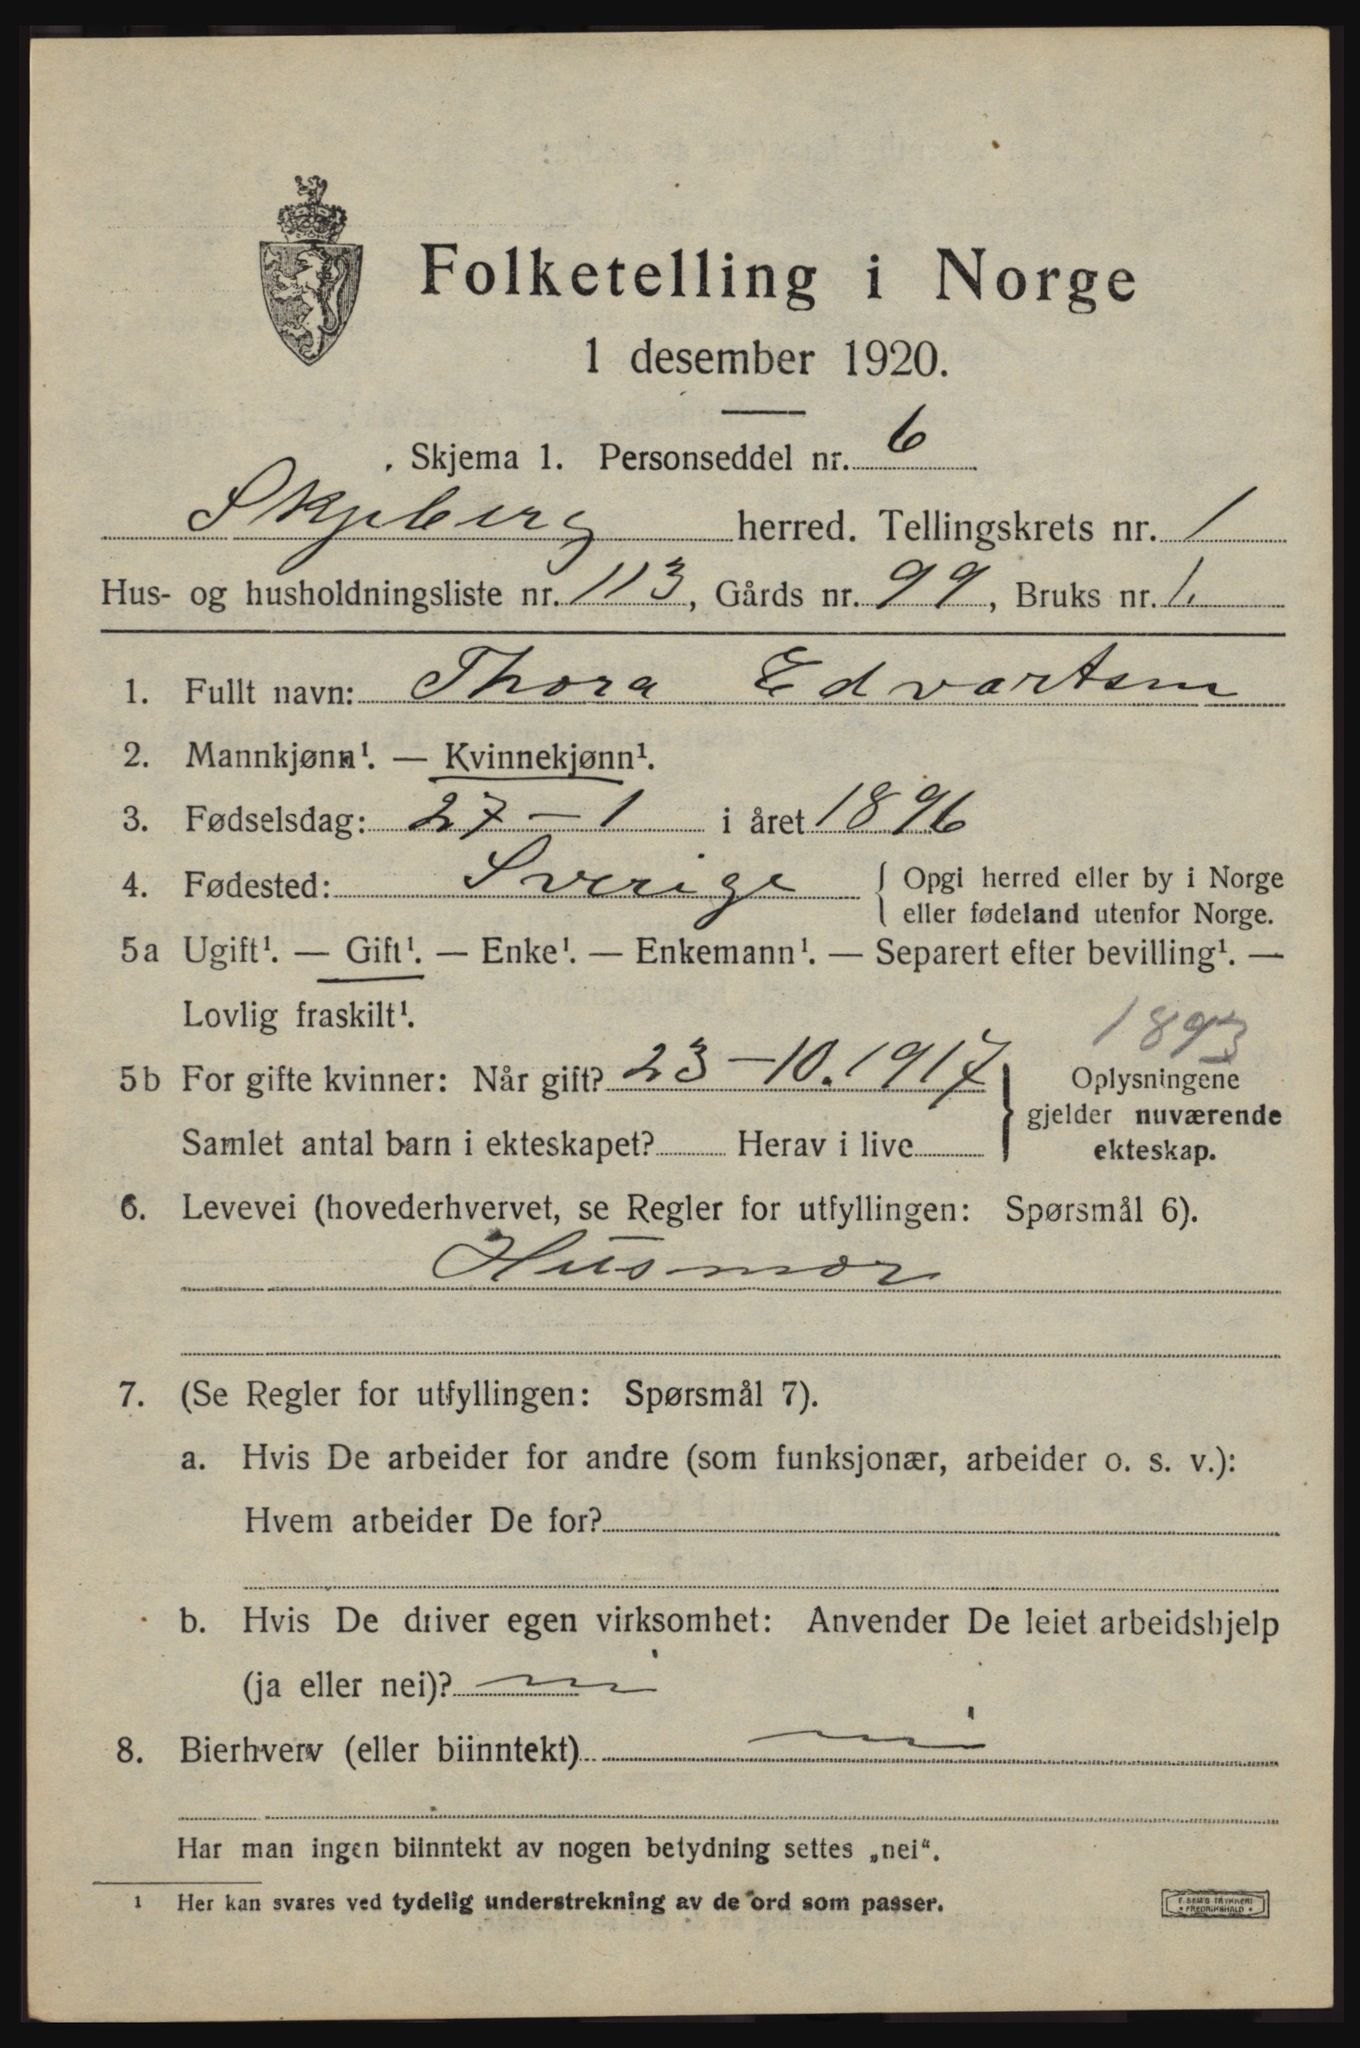 Folketelling i Norge
1 desember 1920.
Skjema 1. Personseddel nr. 6
Skjeberg herred. Tellingskrets nr. 1
Hus- og husholdningsliste nr. 113, Gårds nr. 99, Bruks nr. 1.
1. Fullt navn: Thora Edvartsen
2. Mannkjønn¹. — Kvinnekjønn¹.
3. Fødselsdag: 27 – 1 i året 1896
4. Fødested: Sverige { Opgi herred eller by i Norge
eller fødeland utenfor Norge.
5a Ugift¹. — Gift¹. — Enke¹. — Enkemann¹. — Separert efter bevilling¹. —
Lovlig fraskilt¹.
1893
5b For gifte kvinner: Når gift? 23 – 10. 1917 } Oplysningene
gjelder nuværende
Samlet antal barn i ekteskapet? Herav i live
ekteskap.
6. Levevei (hovederhvervet, se Regler for utfyllingen: Spørsmål 6).
Husmor
7. (Se Regler for utfyllingen: Spørsmål 7).
a. Hvis De arbeider for andre (som funksjonær, arbeider o. s. v.):
Hvem arbeider De for?
b. Hvis De driver egen virksomhet: Anvender De leiet arbeidshjelp
(ja eller nei)? nei
8. Bierhverv (eller biinntekt) nei
Har man ingen biinntekt av nogen betydning settes „nei“.
1 Her kan svares ved tydelig understrekning av de ord som passer.
E. SEM'S TRYKKERI
FREDRIKSHALD